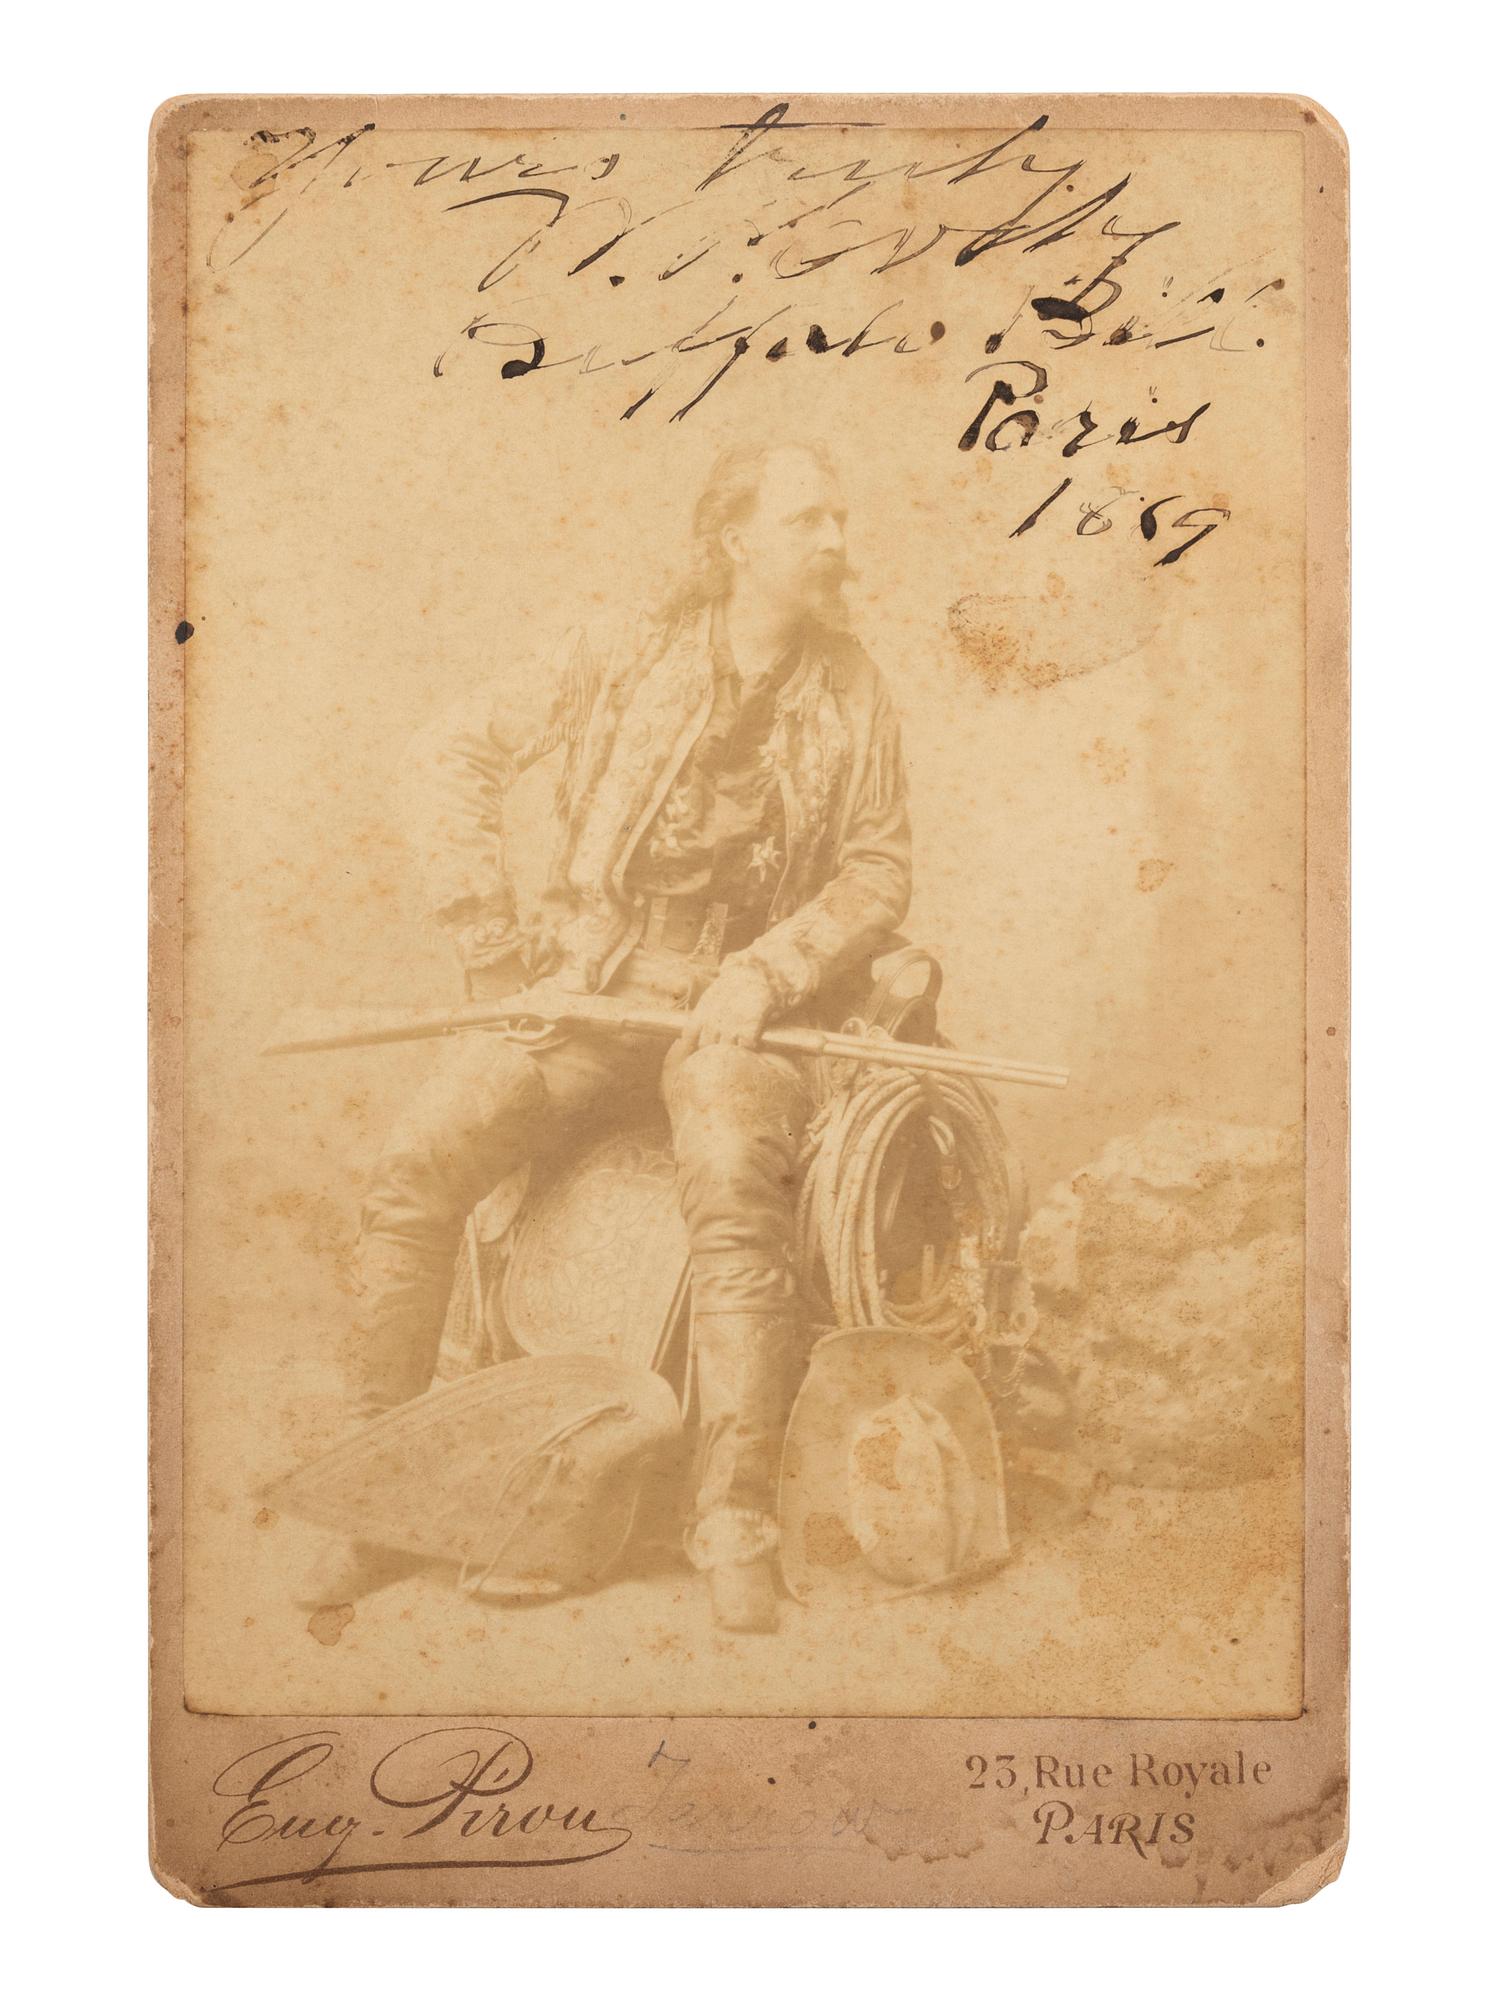 Yours truly
W. F. Cody
Buffalo Bill.
Paris
1889
Eug. Pirou
23, Rue Royale
PARIS